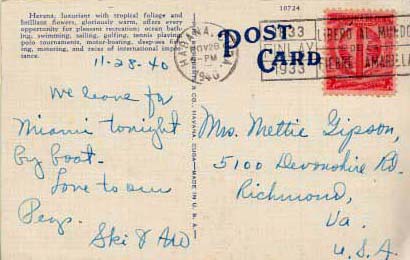 Havana, luxuriant with tropical foliage and
brilliant flowers, gloriously warm, offers every
opportunity for pleasant recreation; ocean bath-
ing, swimming, sailing, golfing, tennis playing
polo tournaments, motor-boating, deep-sea fish-
ing, motoring, and races of international impor-
tance.
10724
POST
CARD
HABANA
NOV 28
PM
1940
1833
FINLAY
1933
LIBERO AL MUNDO
DE LA
FIEBRE AMARILLA
HAVANA, CUBA — MADE IN U. S. A.
11-28-40
We leave for
Miami tonight
by boat.
Love to our
Pegs.
Ski & Aw
Mrs. Mettie Gipson,
5100 Devonshire Rd.
Richmond,
Va.
U.S.A.